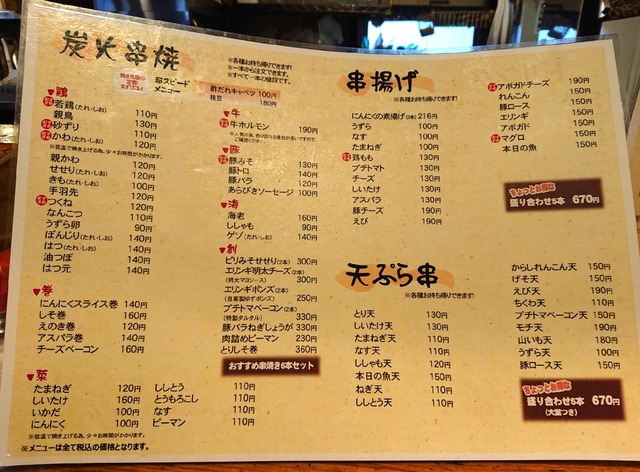 炭火串焼
※各種お持ち帰りできます!
※一本から注文できます。
※すべて一本の値段です。
超スピード
メニュー
酢だれキャベツ 100円
枝豆 180円
鶏
若鶏(たれ・しお) 110円
親鳥 130円
砂ずり 110円
かわ(たれ・しお) 120円
※低温で焼き上げる為、少々お時間がかかります。
親かわ 120円
せせり(たれ・しお) 120円
きも(たれ・しお) 100円
手羽先 120円
つくね 120円
なんこつ 110円
うずら卵 90円
ぼんじり(たれ・しお) 140円
はつ(たれ・しお) 140円
油つぼ 140円
はつ元 140円
巻
にんにくスライス巻 140円
しそ巻 160円
えのき巻 120円
アスパラ巻 140円
チーズベーコン 160円
菜
たまねぎ 120円
しいたけ 160円
いかだ 100円
にんにく 100円
ししとう 110円
とうもろこし 110円
なす 110円
ピーマン 110円
※低温で焼き上げる為、少々お時間がかかります。
※メニューは全て税込の価格となります。
牛
牛ホルモン 190円
豚
豚みそ 130円
豚トロ 140円
豚バラ 120円
あらびきソーセージ 100円
海
海老 160円
ししゃも 90円
ゲソ(たれ・しお) 140円
創
ピリみそせせり(2本) 300円
エリンギ明太チーズ(2本) 300円
(明太マヨソース)
エリンギポンズ(2本) 250円
(自家製ゆずポンズ)
プチトマトベーコン(2本)
(特製タルタル) 330円
豚バラねぎしょうが 330円
肉詰めピーマン 230円
とりしそ巻 360円
おすすめ串焼き6本セット
串揚げ
※各種お持ち帰りできます!
にんにくの素揚げ(2本) 216円
うずら 100円
なす 100円
たまねぎ 100円
鶏もも 130円
プチトマト 130円
チーズ 130円
しいたけ 130円
アスパラ 130円
豚チーズ 190円
えび 190円
アボガドチーズ 190円
れんこん 150円
豚ロース 150円
エリンギ 150円
アボガド 150円
マグロ 150円
本日の魚 150円
ちょっとお得な
盛り合わせ5本 670円
天ぷら串
※各種お持ち帰りできます!
とり天 130円
しいたけ天 130円
たまねぎ天 110円
なす天 110円
ししゃも天 120円
本日の魚天 150円
ねぎ天 110円
ししとう天 110円
からしれんこん天 150円
げそ天 150円
えび天 190円
ちくわ天 110円
プチトマトベーコン天 150円
モチ天 190円
山いも天 180円
うずら天 100円
豚ロース天 150円
ちょっとお得な
盛り合わせ5本 670円
(大葉つき)